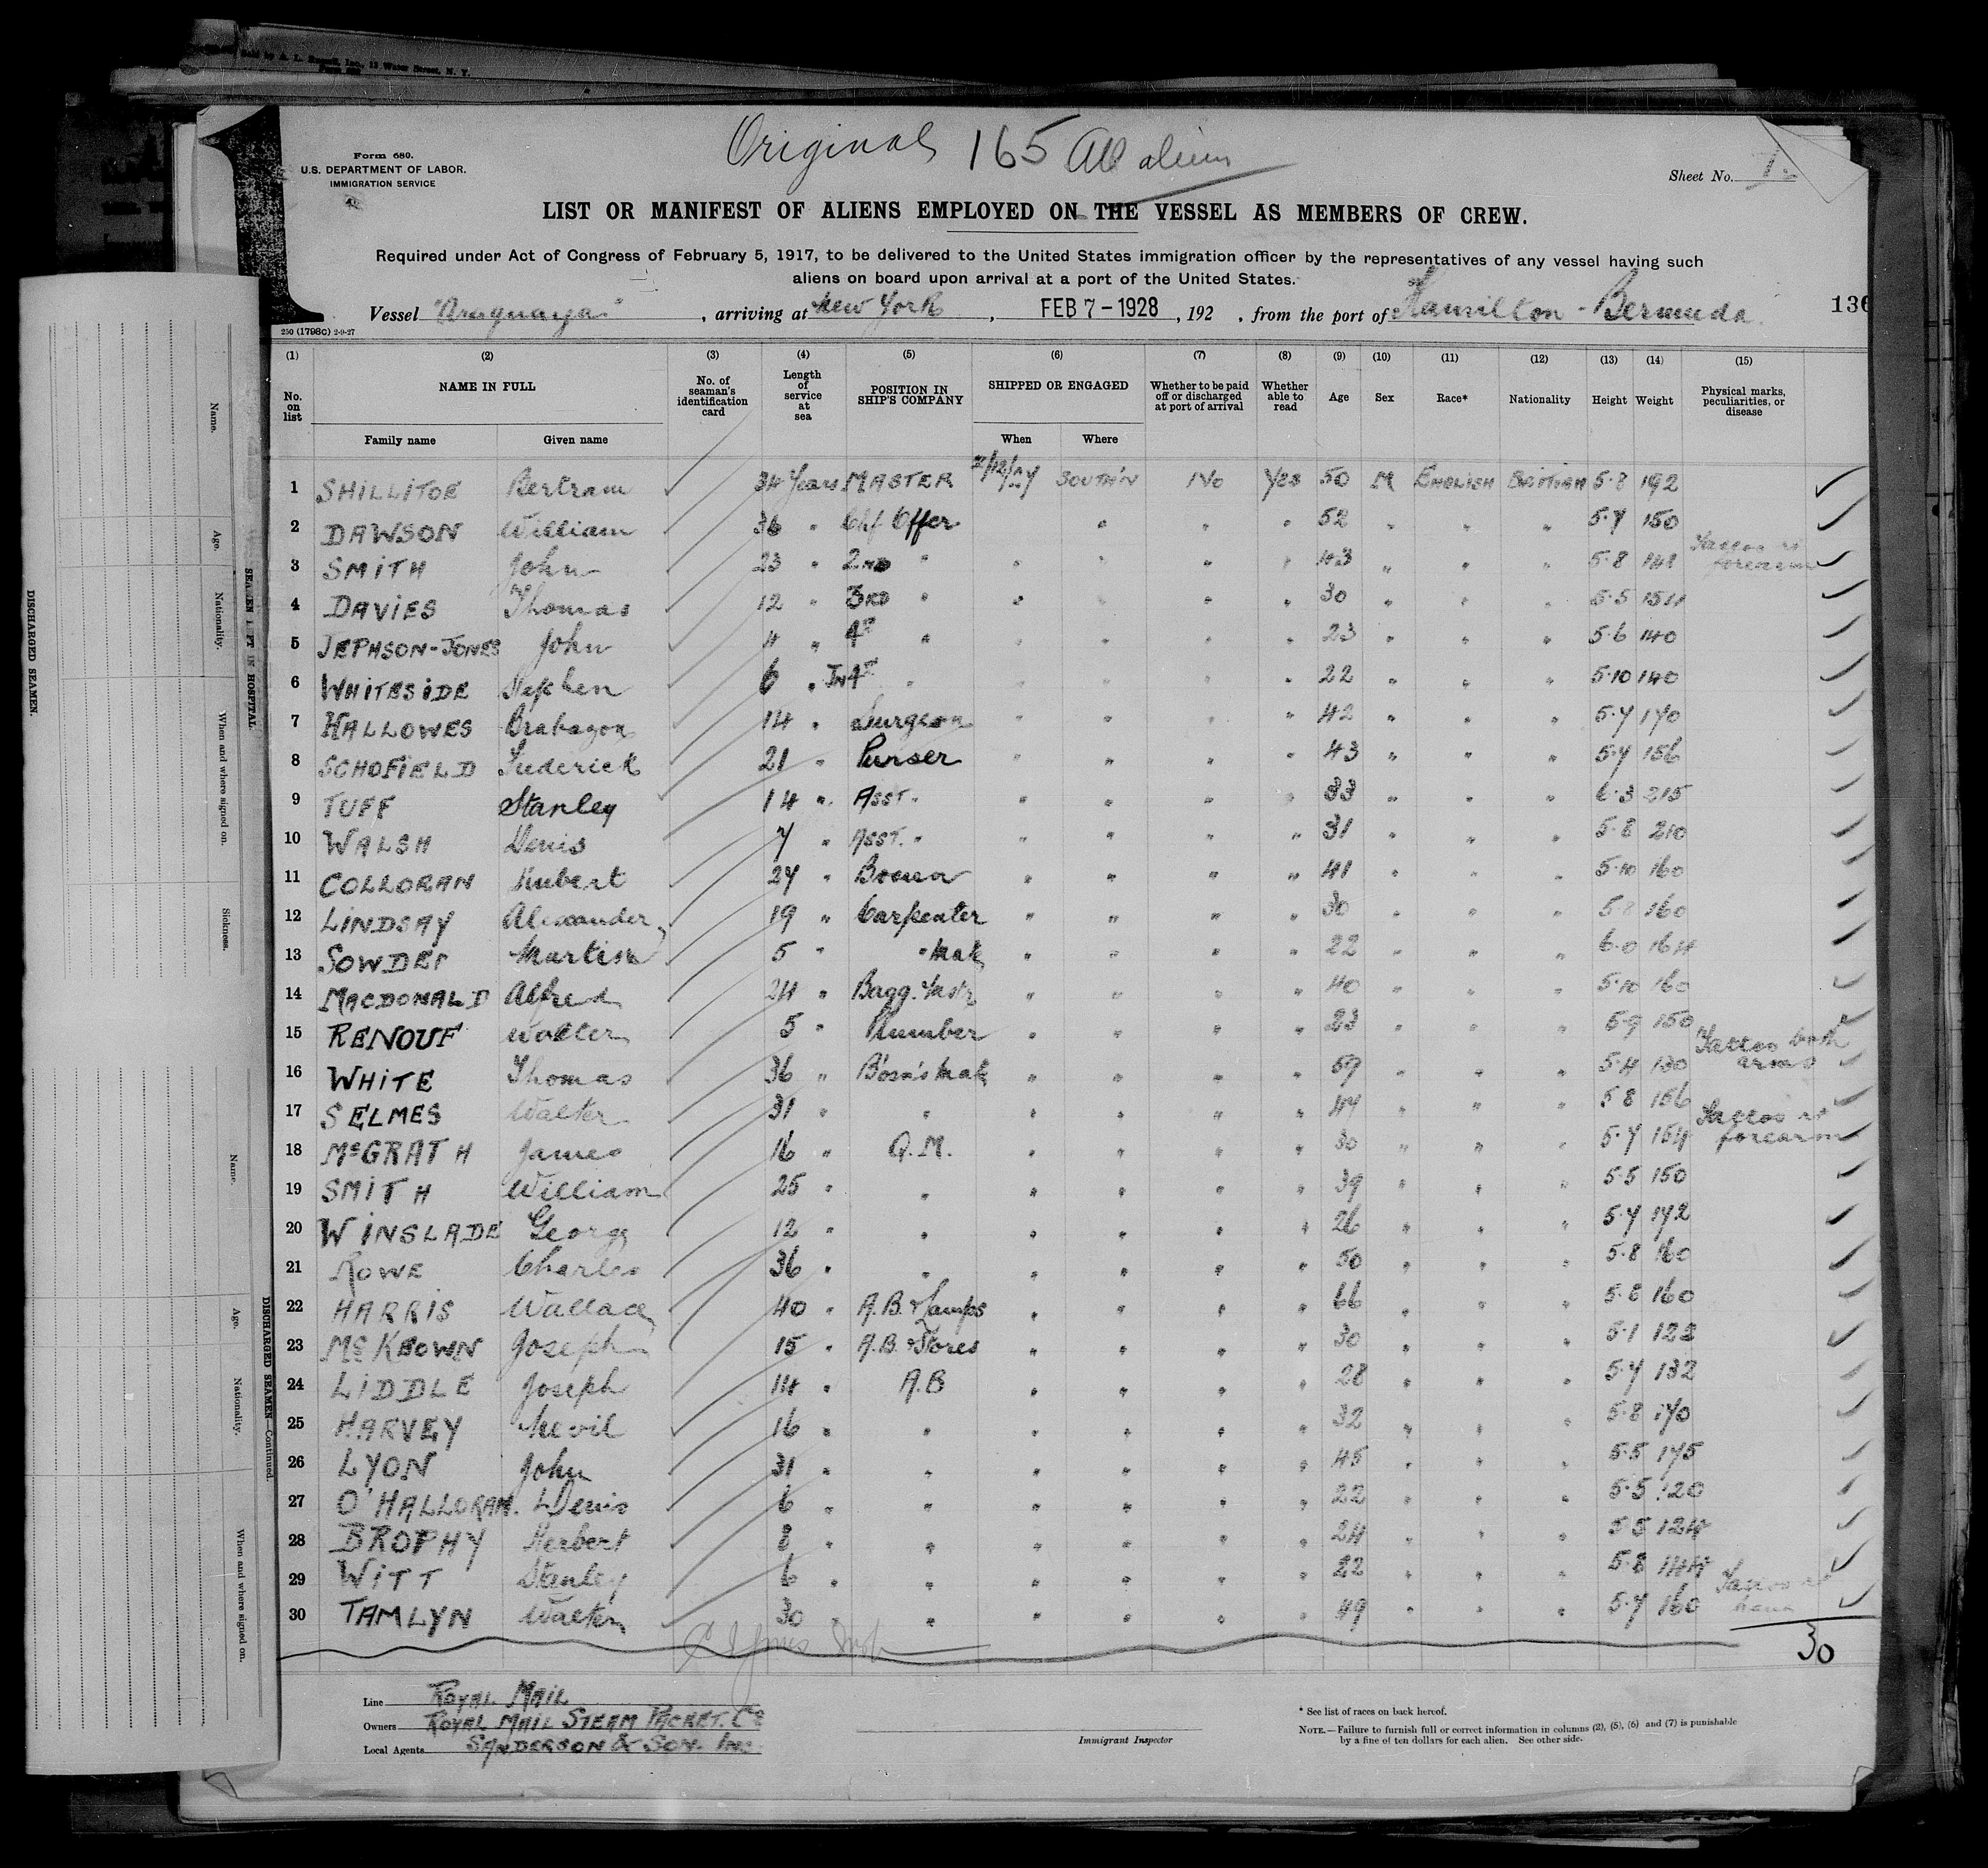 Sold by A. L. Russell, Inc., 13 Water Street, N. Y.
Original 165 All aliens
Form 680.
U.S. DEPARTMENT OF LABOR.
IMMIGRATION SERVICE
Sheet No. 1
LIST OR MANIFEST OF ALIENS EMPLOYED ON THE VESSEL AS MEMBERS OF CREW.
Required under Act of Congress of February 5, 1917, to be delivered to the United States immigration officer by the representatives of any vessel having such
aliens on board upon arrival at a port of the United States.
Vessel "Araguaya", arriving at New York, FEB 7-1928, 192 , from the port of Hamilton - Bermuda.
136
250 (1798C) 2-9-27
(1) (2) (3) (4) (5) (6) (7) (8) (9) (10) (11) (12) (13) (14) (15)
No. on list NAME IN FULL Family name Given name No. of seaman's identification card Length of service at sea POSITION IN SHIP'S COMPANY SHIPPED OR ENGAGED When Where Whether to be paid off or discharged at port of arrival Whether able to read Age Sex Race* Nationality Height Weight Physical marks, peculiarities, or disease
1 SHILLITOE Bertram 34 Years MASTER SOUTH'N No Yes 50 M ENGLISH BRITISH 5·8 192
2 DAWSON William 36 " Chf Offer " " " 52 " " " 5·7 150
3 SMITH John 23 " 2ND " " " " " 43 " " " 5·8 141 Tattoo rt forearm
4 DAVIES Thomas 12 " 3RD " " " " " 30 " " " 5·5 154
5 JEPHSON-JONES John 4 " 4TH " " " " " 23 " " " 5·6 140
6 WHITESIDE Stephen 6 " Jn 4TH " " " " " 22 " " " 5·10 140
7 HALLOWES Brabazon 14 " Surgeon " " " " 42 " " " 5·7 170
8 SCHOFIELD Frederick 21 " Purser " " " " 43 " " " 5·7 156
9 TUFF Stanley 14 " ASST. " " " " " 33 " " " 6·3 215
10 WALSH Denis 7 " ASST. " " " " " 31 " " " 5·8 210
11 COLLORAN Hubert 27 " Bosun " " " " 41 " " " 5·10 160
12 LINDSAY Alexander 19 " Carpenter " " " " 30 " " " 5·8 160
13 SOWDEN Martin 5 " " Mate " " " " 22 " " " 6·0 164
14 MACDONALD Alfred 24 " Bagg. Mastr " " " " 40 " " " 5·10 160
15 RENOUF Walter 5 " Plumber " " " " 23 " " " 5·9 150
16 WHITE Thomas 36 " Bosn's Mate " " " " 59 " " " 5·4 130 Tattoo both arms
17 SELMES Walter 31 " " " " " " 47 " " " 5·8 156
18 McGRATH James 16 " Q.M. " " " " 30 " " " 5·7 154 Tattoo rt forearm
19 SMITH William 25 " " " " " " 39 " " " 5·5 150
20 WINSLADE George 12 " " " " " " 26 " " " 5·7 172
21 ROWE Charles 36 " " " " " " 50 " " " 5·8 160
22 HARRIS Wallace 40 " A.B. & Lamps " " " " 66 " " " 5·8 160
23 McKEOWN Joseph 15 " A.B. & Stores " " " " 30 " " " 5·1 122
24 LIDDLE Joseph 14 " A.B " " " " 28 " " " 5·7 132
25 HARVEY Nevil 16 " " " " " " 32 " " " 5·8 170
26 LYON John 31 " " " " " " 45 " " " 5·5 175
27 O'HALLORAN. Denis 6 " " " " " " 22 " " " 5·5 120
28 BROPHY Herbert 8 " " " " " " 24 " " " 5·5 124
29 WITT Stanley 6 " " " " " " 22 " " " 5·8 144
30 TAMLYN Walter 30 " " " " " " 49 " " " 5·7 160 Tattoo rt hand
30
Line ROYAL MAIL
Owners ROYAL MAIL STEAM PACKET. Co
Local Agents SANDERSON & SON. INC.
Immigrant Inspector
* See list of races on back hereof.
NOTE.—Failure to furnish full or correct information in columns (2), (5), (6) and (7) is punishable
by a fine of ten dollars for each alien. See other side.
DISCHARGED SEAMEN.
Name.
Age.
Nationality.
When and where signed on.
Sickness.
SEAMEN LEFT IN HOSPITAL.
Name.
Age.
Nationality.
When and where signed on.
DISCHARGED SEAMEN—Continued.